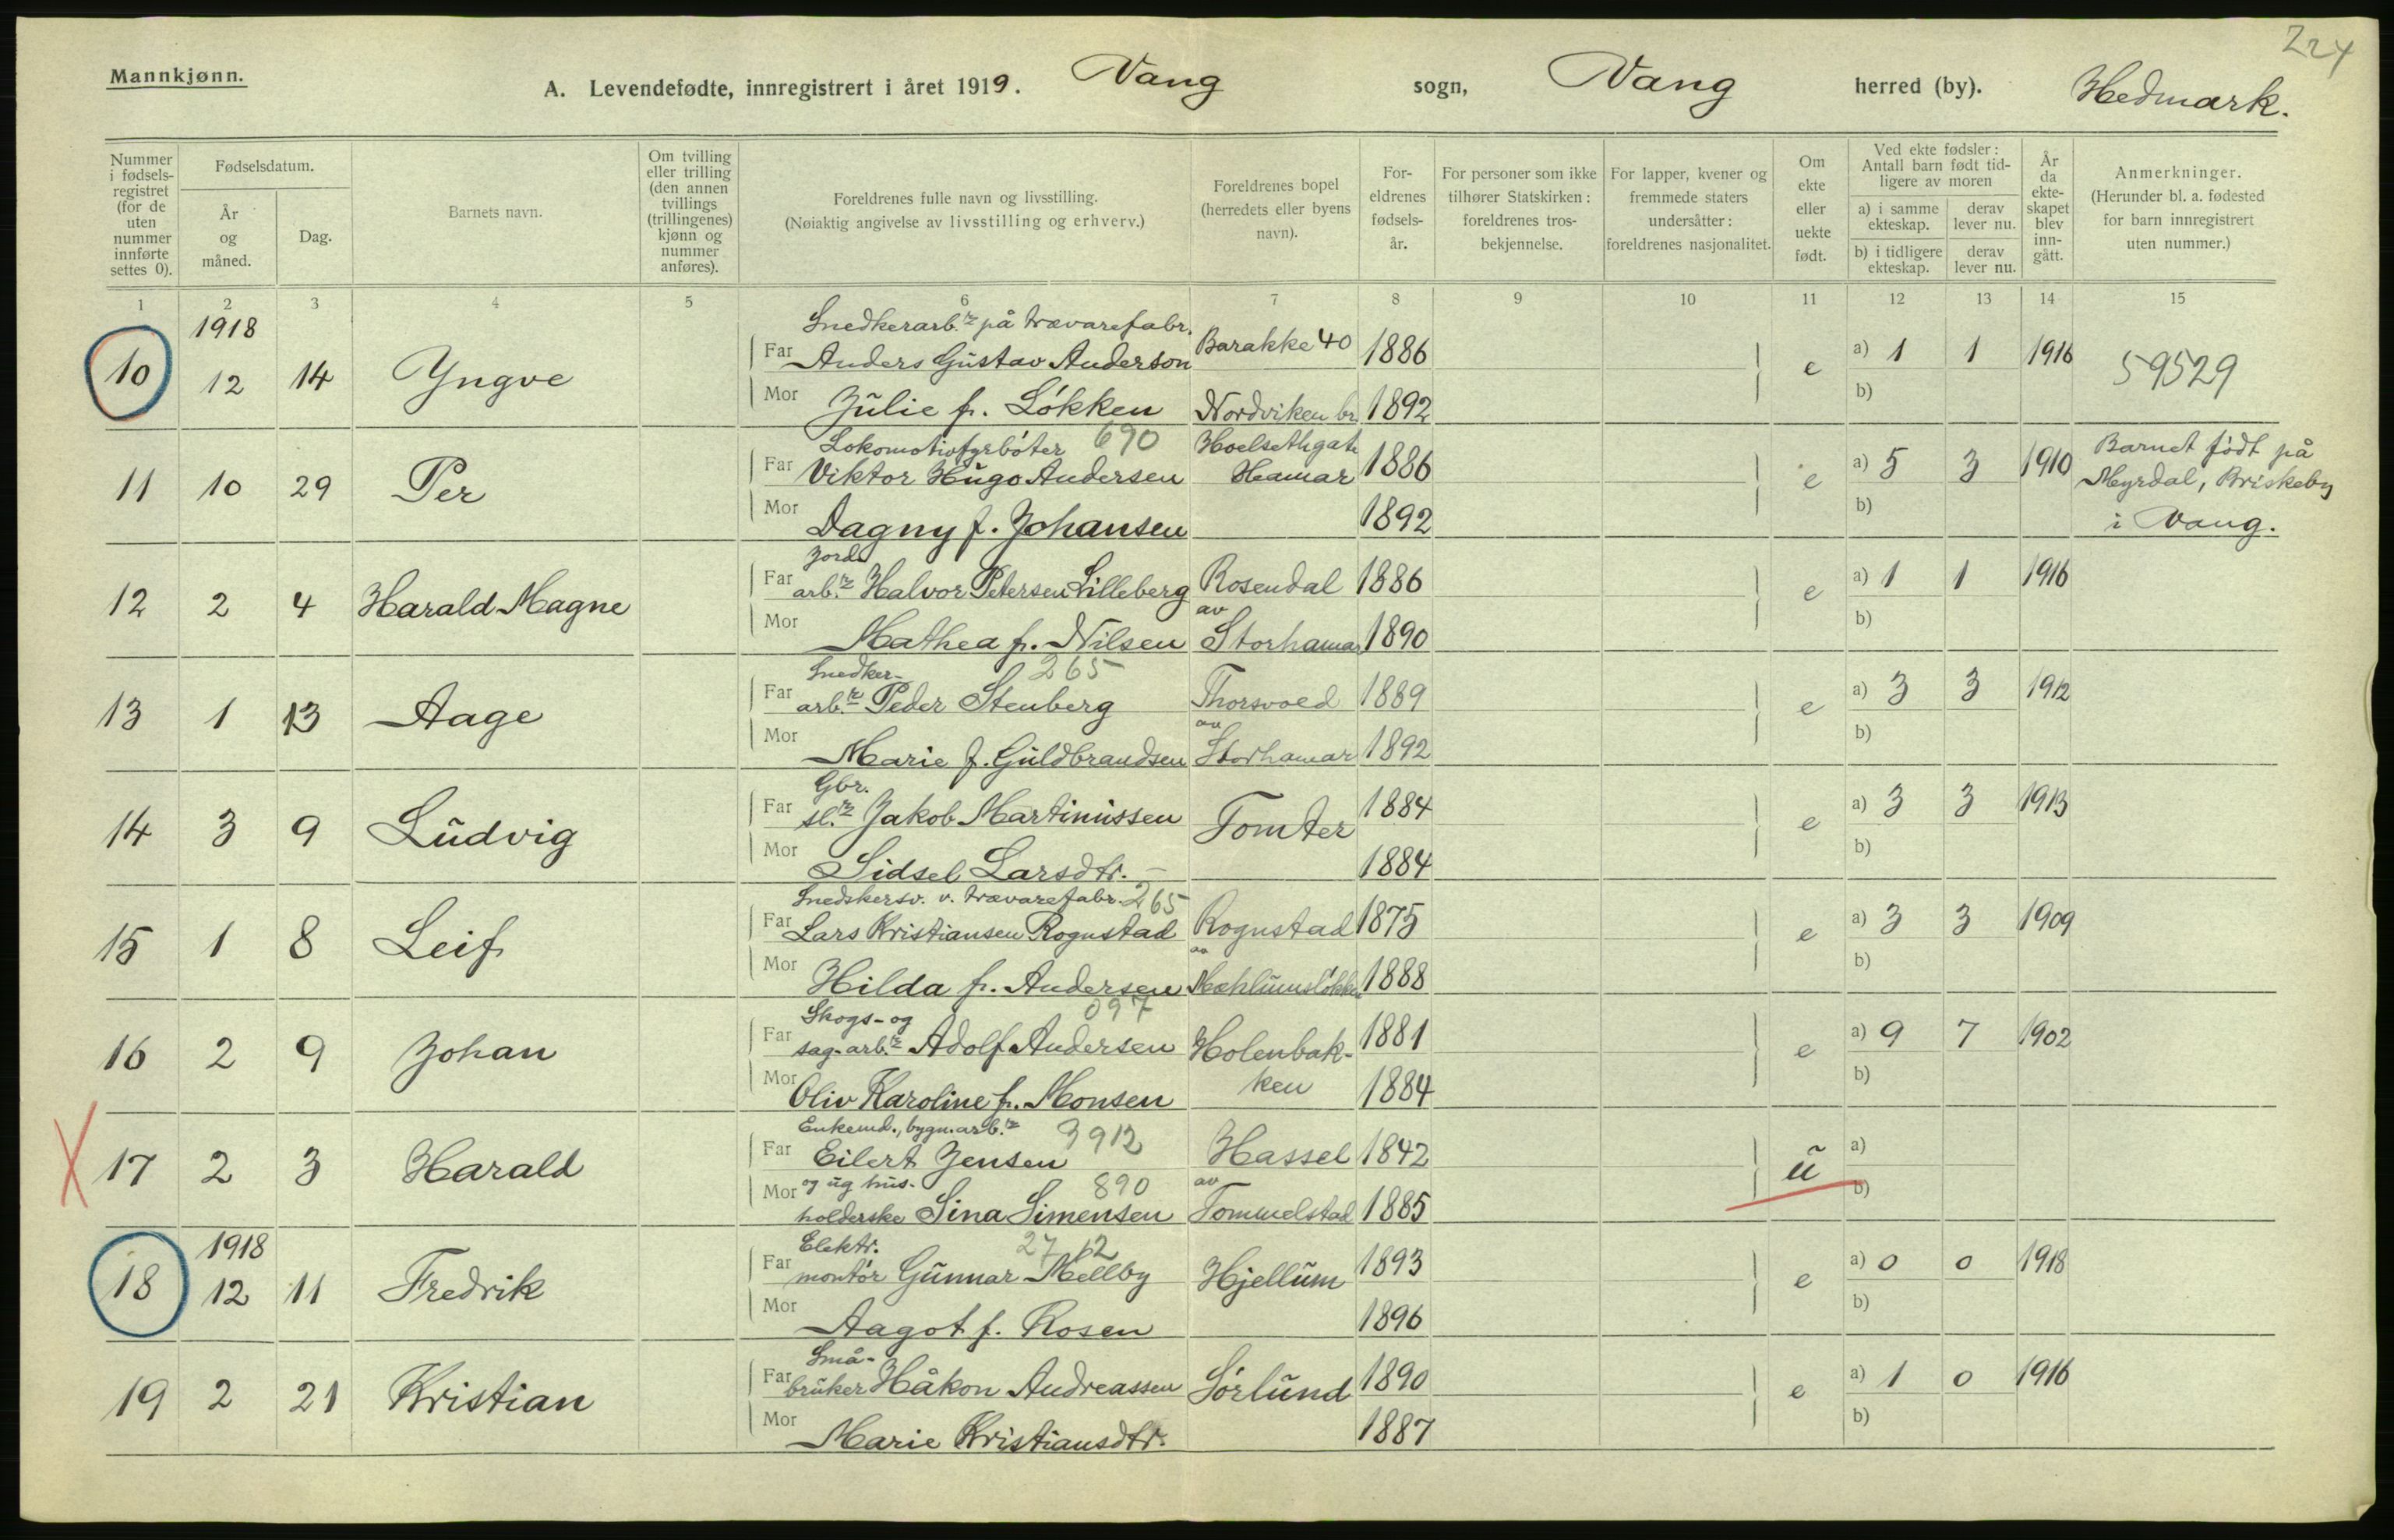 224
Mannkjønn.
A. Levendefødte, innregistrert i året 1919. Vang sogn, Vang herred (by). Hedmark.
Nummer i fødselsregistret (for de uten nummer innførte settes 0).
Fødselsdatum.
År og måned.
Dag.
Barnets navn.
Om tvilling eller trilling (den annen tvillings (trillingenes) kjønn og nummer anføres).
Foreldrenes fulle navn og livsstilling.
(Nøiaktig angivelse av livsstilling og erhverv.)
Foreldrenes bopel (herredets eller byens navn).
Foreldrenes fødselsår.
For personer som ikke tilhører Statskirken: foreldrenes trosbekjennelse.
For lapper, kvener og fremmede staters undersåtter: foreldrenes nasjonalitet.
Om ekte eller uekte født.
Ved ekte fødsler: Antall barn født tidligere av moren
a) i samme ekteskap. derav lever nu.
b) i tidligere ekteskap. derav lever nu.
År da ekteskapet blev inngått.
Anmerkninger.
(Herunder bl. a. fødested for barn innregistrert uten nummer.)
1 2 3 4 5 6 7 8 9 10 11 12 13 14 15
1918 Snedkerarb.r på trævarefabr.
10 12 14 Yngve Far Anders Gustav Anderson Barakke 40 1886 e a) 1 1 1916 59529
Mor Julie f. Løkken Nordviken br. 1892 b)
Lokomotivfyrbøter 690 Hoelsethgate Barnet født på
11 10 29 Per Far Viktor Hugo Andersen Hamar 1886 e a) 5 3 1910 Myrdal, Briskeby
Mor Dagny f. Johansen 1892 b) i Vang.
Jord-
12 2 4 Harald Magne Far arb.r Halvor Petersen Lilleberg Rosendal 1886 e a) 1 1 1916
av
Mor Mathea f. Nilsen Storhamar 1890 b)
Snedker- 265
13 1 13 Aage Far arb.r Peder Stenberg Thorsvold 1889 e a) 3 3 1912
av
Mor Marie f. Guldbrandsen Storhamar 1892 b)
Gbr.
14 3 9 Ludvig Far sl.r Jakob Martiniussen Tomter 1884 e a) 3 3 1913
Mor Sidsel Larsdtr. 1884 b)
Snedkersv. v. trævarefabr. 265
15 1 8 Leif Far Lars Kristiansen Rognstad Rognstad 1875 e a) 3 3 1909
av
Mor Hilda f. Andersen Mæhlumsløkken 1888 b)
Skogs- og 097
16 2 9 Johan Far sag-arb.r Adolf Andersen Holenbak- 1881 e a) 9 7 1902
Mor Oliv Karoline f. Monsen ken 1884 b)
Enkemd., bygn.arb.r 3912
17 2 3 Harald Far Eilert Jensen Hassel 1842 u a)
og ug hus- 890 av
Mor holderske Sina Simensen Tommelstad 1885 b)
1918 Elektr. 27 12
18 12 11 Fredrik Far montør Gunnar Mellby Hjellum 1893 e a) 0 0 1918
Mor Aagot f. Rosen 1896 b)
Små-
19 2 21 Kristian Far bruker Håkon Andreassen Sørlund 1890 e a) 1 0 1916
Mor Marie Kristiansdtr. 1887 b)